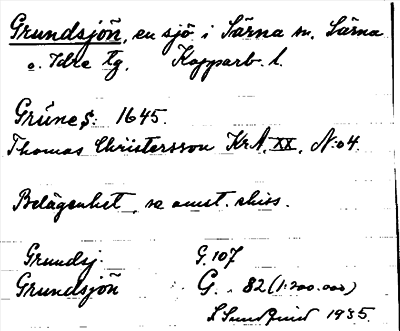 Grundsjön̄, en sjö i Särna sn. Särna
o. Idre tg. Kopparb. l.
Grúne s: 1645.
Thomas Christersson KrA. XX, N:o 4.
Belägenhet, se omst. skiss.
Grundsj. G. 107
Grundsjön̄ G. 82 (1:200.000)
1935.